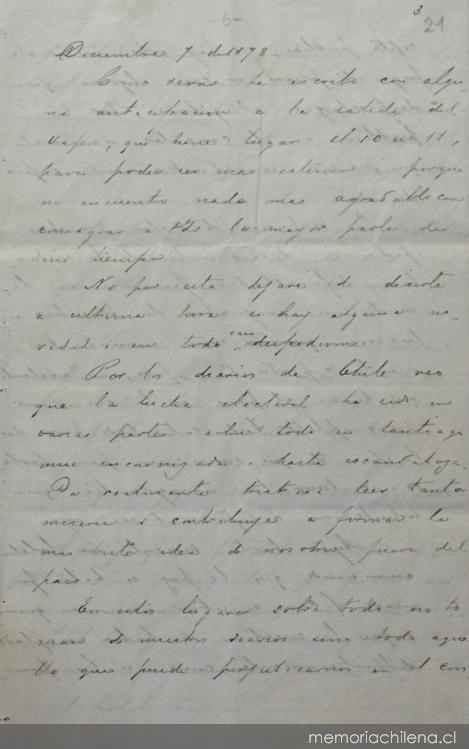 3
21
-6-
Diciembre 7 de 1878
Como verás te escribo con algu-
na anticipacion a la salida del
vapor, que tiene lugar el 10 u 11,
para poder ser mas estenso i porque
no encuentro nada mas agradable con
consagrar a Uds la mayor parte de
mi tiempo
No por esto dejaré de decirte
a ultima hora si hay alguna no-
vedad i en todo caso despedirme
Por los diarios de Chile veo
que la lucha electoral ha sido en
varias partes i sobre todo en Santiago
mui encarnizada i hasta escandalosa.
Da realmente tristeza leer tanta
miseria i contribuye a formar la
mas triste idea de nosotros fuera del
pais
En estos lugares sobre todo no to-
man de nuestros diarios sino todo aque-
llo que puede perjudicarnos en el con
memoriachilena.cl